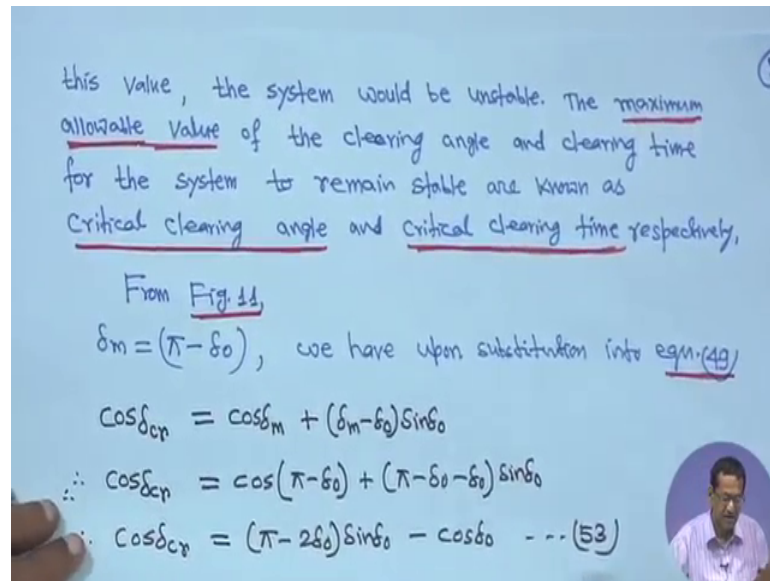 this value, the system would be unstable. The maximum
allowable value of the clearing angle and clearing time
for the system to remain stable are known as
critical clearing angle and critical clearing time respectively,
From Fig. 11,
δm = (π-δ0), we have upon substitution into eqn.(49)
cosδcr = cosδm + (δm-δ0)sinδ0
∴ cosδcr = cos(π-δ0) + (π-δ0-δ0)sinδ0
∴ cosδcr = (π-2δ0)sinδ0 - cosδ0 --- (53)